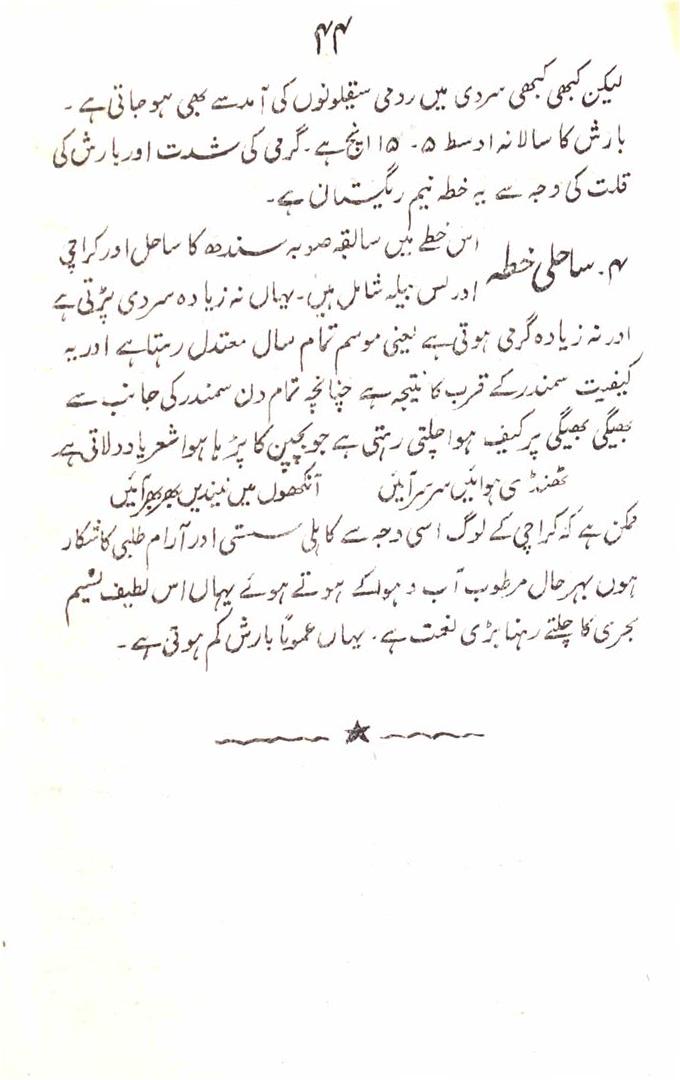 ۴۴
لیکن کبھی کبھی سردی میں ردمی سیقلونوں کی آمد سے بھی ہو جاتی ہے ۔
بارش کا سالانہ اوسط ۵ ۔ ۱۵ انچ ہے ۔ گرمی کی شدت اور بارش کی
قلت کی وجہ سے یہ خطہ نیم ریگستان ہے ۔
۴ ۔ ساحلی خطہ اس خطے میں سابقہ صوبہ سندھ کا ساحل اور کراچی
اور لس بیلہ شامل ہیں ۔ یہاں نہ زیادہ سردی پڑتی ہے
اور نہ زیادہ گرمی ہوتی ہے یعنی موسم تمام سال معتدل رہتا ہے اور یہ
کیفیت سمندر کے قرب کا نتیجہ ہے چنانچہ تمام دن سمندر کی جانب سے
بھیگی بھیگی پر کیف ہوا چلتی رہتی ہے جو بچپن کا پڑہا ہوا شعر یاد دلاتی ہے ۔
ٹھنڈی ہوائیں سر سر آئیں آنکھوں میں نیندیں بھر بھر آئیں
ممکن ہے کہ کراچی کے لوگ اسی وجہ سے کاہلی سستی اور آرام طلبی کا شکار
ہوں بہر حال مرطوب آب و ہوا کے ہوتے ہوئے یہاں اس لطیف نسیم
بحری کا چلتے رہنا بڑی نعمت ہے ۔ یہاں عموماً بارش کم ہوتی ہے ۔